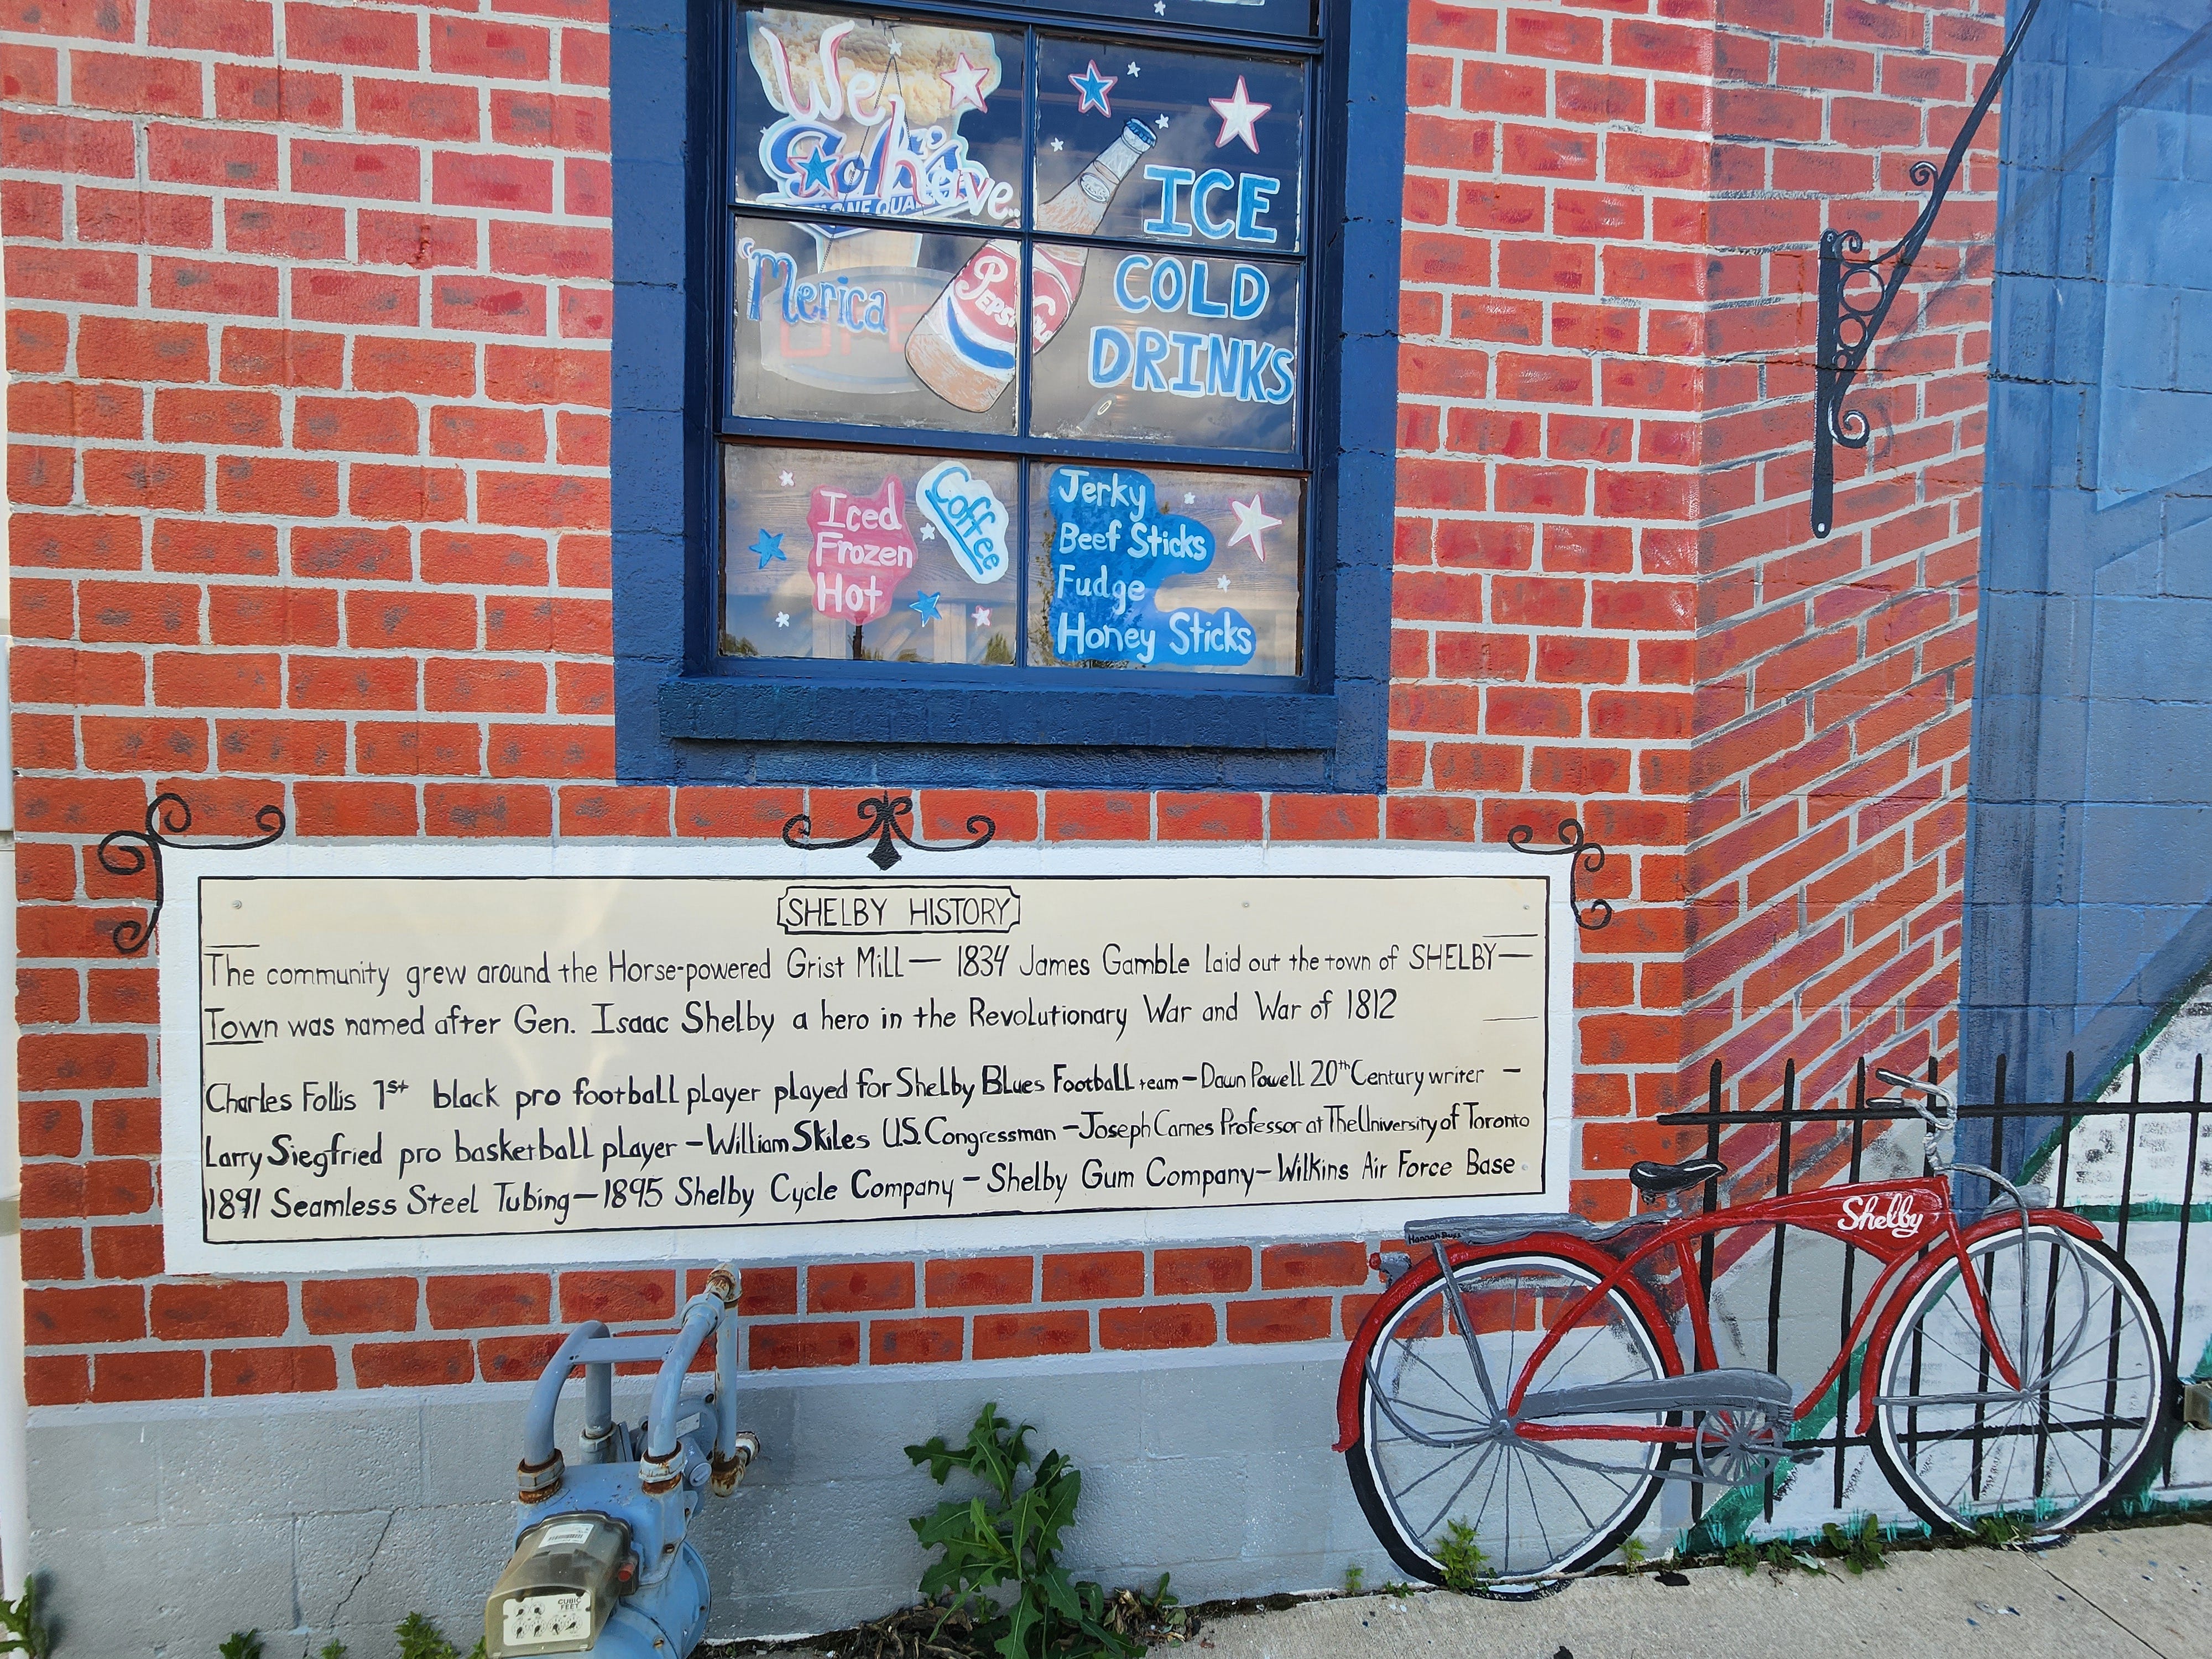 We
have...
'Merica
PEPSI Cola
ICE
COLD
DRINKS
Iced
Frozen
Hot
Coffee
Jerky
Beef Sticks
Fudge
Honey Sticks
SHELBY HISTORY
The community grew around the Horse-powered Grist Mill— 1834 James Gamble laid out the town of SHELBY—
Town was named after Gen. Isaac Shelby a hero in the Revolutionary War and War of 1812
Charles Follis 1st black pro football player played for Shelby Blues Football team—Dawn Powell 20th Century writer —
Larry Siegfried pro basketball player —William Skiles U.S. Congressman —Joseph Carnes Professor at The University of Toronto
1891 Seamless Steel Tubing—1895 Shelby Cycle Company — Shelby Gum Company—Wilkins Air Force Base
Shelby
CUBIC
FEET